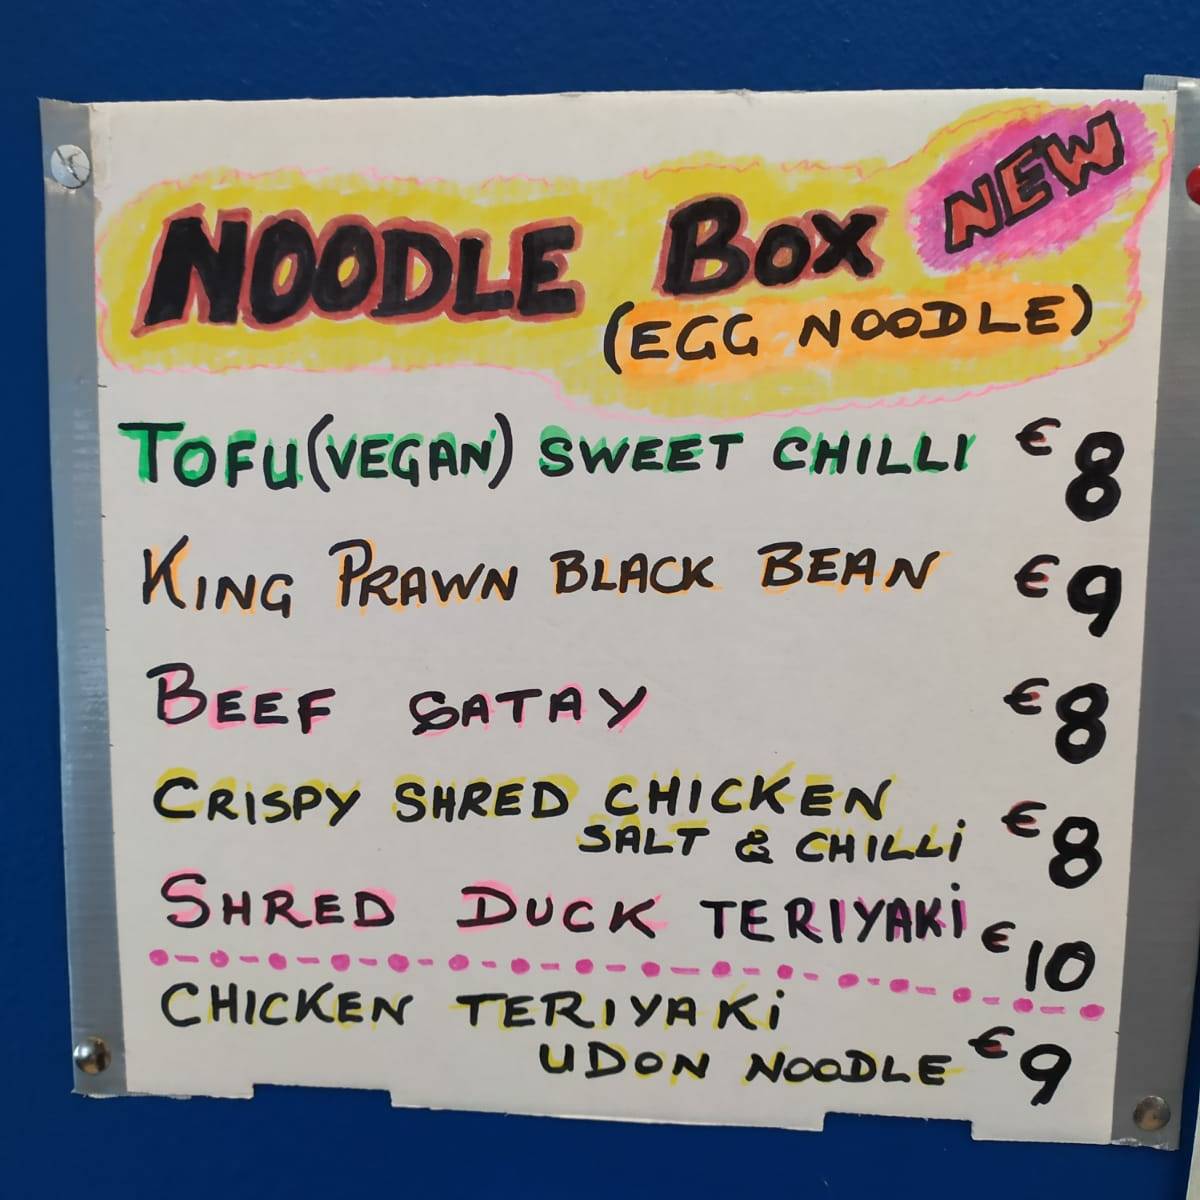 NOODLE BOX NEW
(EGG NOODLE)
TOFU (VEGAN) SWEET CHILLI €8
KING PRAWN BLACK BEAN €9
BEEF SATAY €8
CRISPY SHRED CHICKEN
SALT & CHILLi €8
SHRED DUCK TERIYAKi €10
CHICKEN TERIYAKi
UDON NOODLE €9